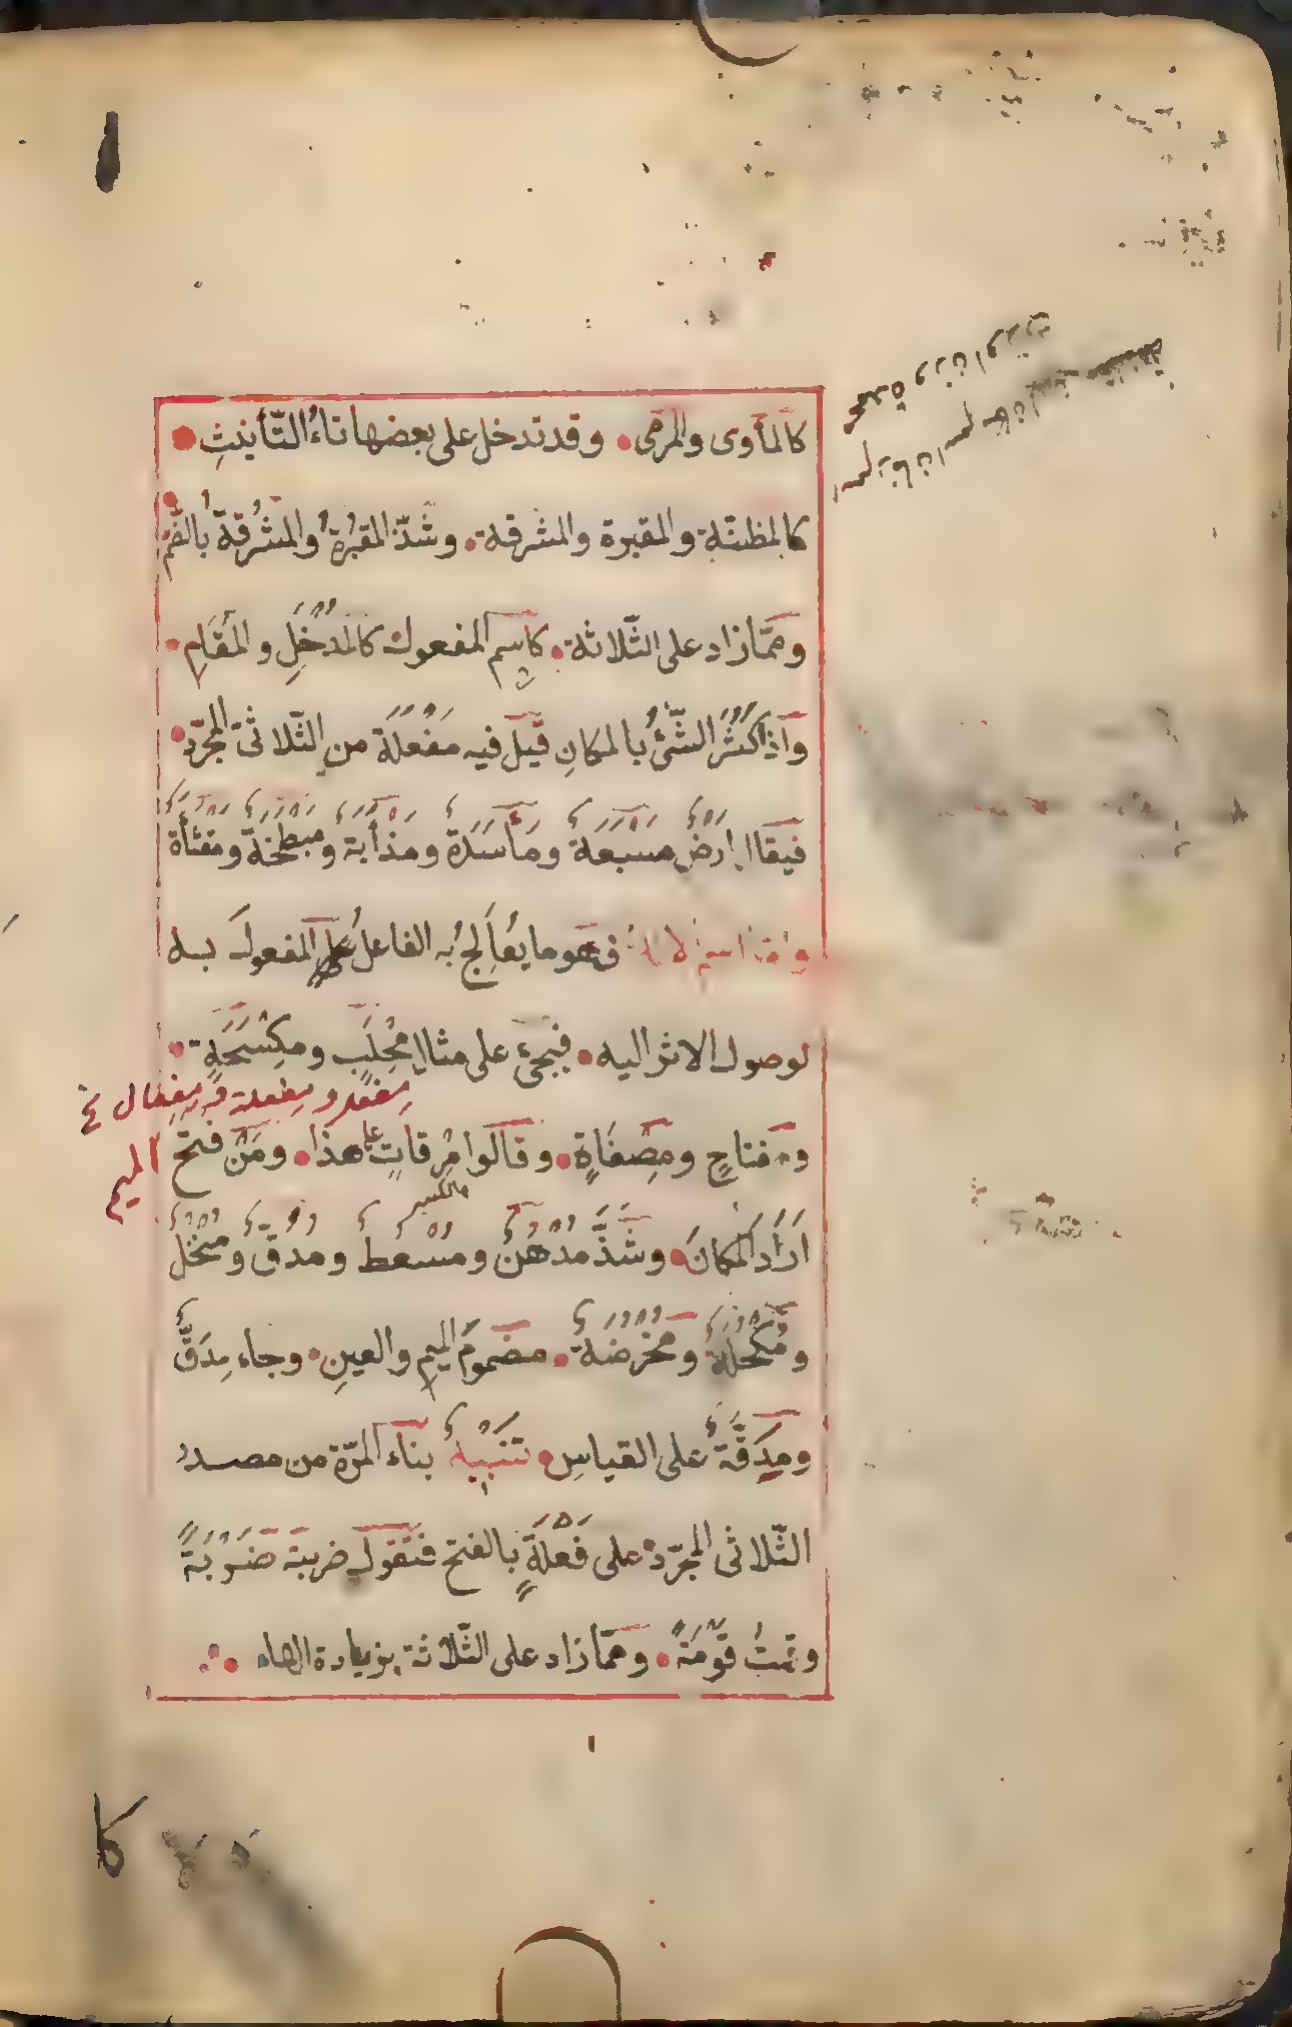 كالمأوى والمرمى • وقد تدخل على بعضها تاء التّأنيثِ •
كالمظنّة والمقبرة والمشرقة • وشذّ المقبُرةُ والمشرُقةُ بالضّم
وممّا زاد على الثّلاثة • كاسم المفعول كالمُدخَلِ والمُقَامِ •
وَاذا كَثُرَ الشّئُ بالمكانِ قيلَ فيه مَفْعَلَة من الثّلاثىّ المجرّد •
فيقال ارضٌ مسبعة ومَأسَدَةٌ ومذأبة ومبطخة ومقثأة
وامّا اسم الالة فهو ما يُعالِجُ به الفاعلُ المفعولَ به
لوصول الاثر اليه • فيجىء على مثال مِحْلَبٍ ومِكسَحَةٍ •
مِفعل ومفعلة ومِفعال
ومفتاحٍ ومِصفَاةٍ • وقالوا مِرقاةٍ على هذا • ومَنْ فتح
الميم
بالكسر
ارَادَ المكانَ • وشذَّ مُدْهُنٌ ومُسعُطٌ ومُدُقٌّ ومنخُلٌ
ومُكْحُلَةٌ ومُحْرُضَةٌ • مضمومَ الميمِ والعينِ • وجاء مِدَقٌّ
ومِدَقَّةٌ على القياسِ • تنبيهٌ بناء المرّة من مصدر
الثّلاثى المجرّد على فَعْلَةٍ بالفتح فتقول ضربت ضَرْبَةً
وقمتُ قَوْمَةً • وممّا زاد على الثّلاثة بزيادة الهاء •